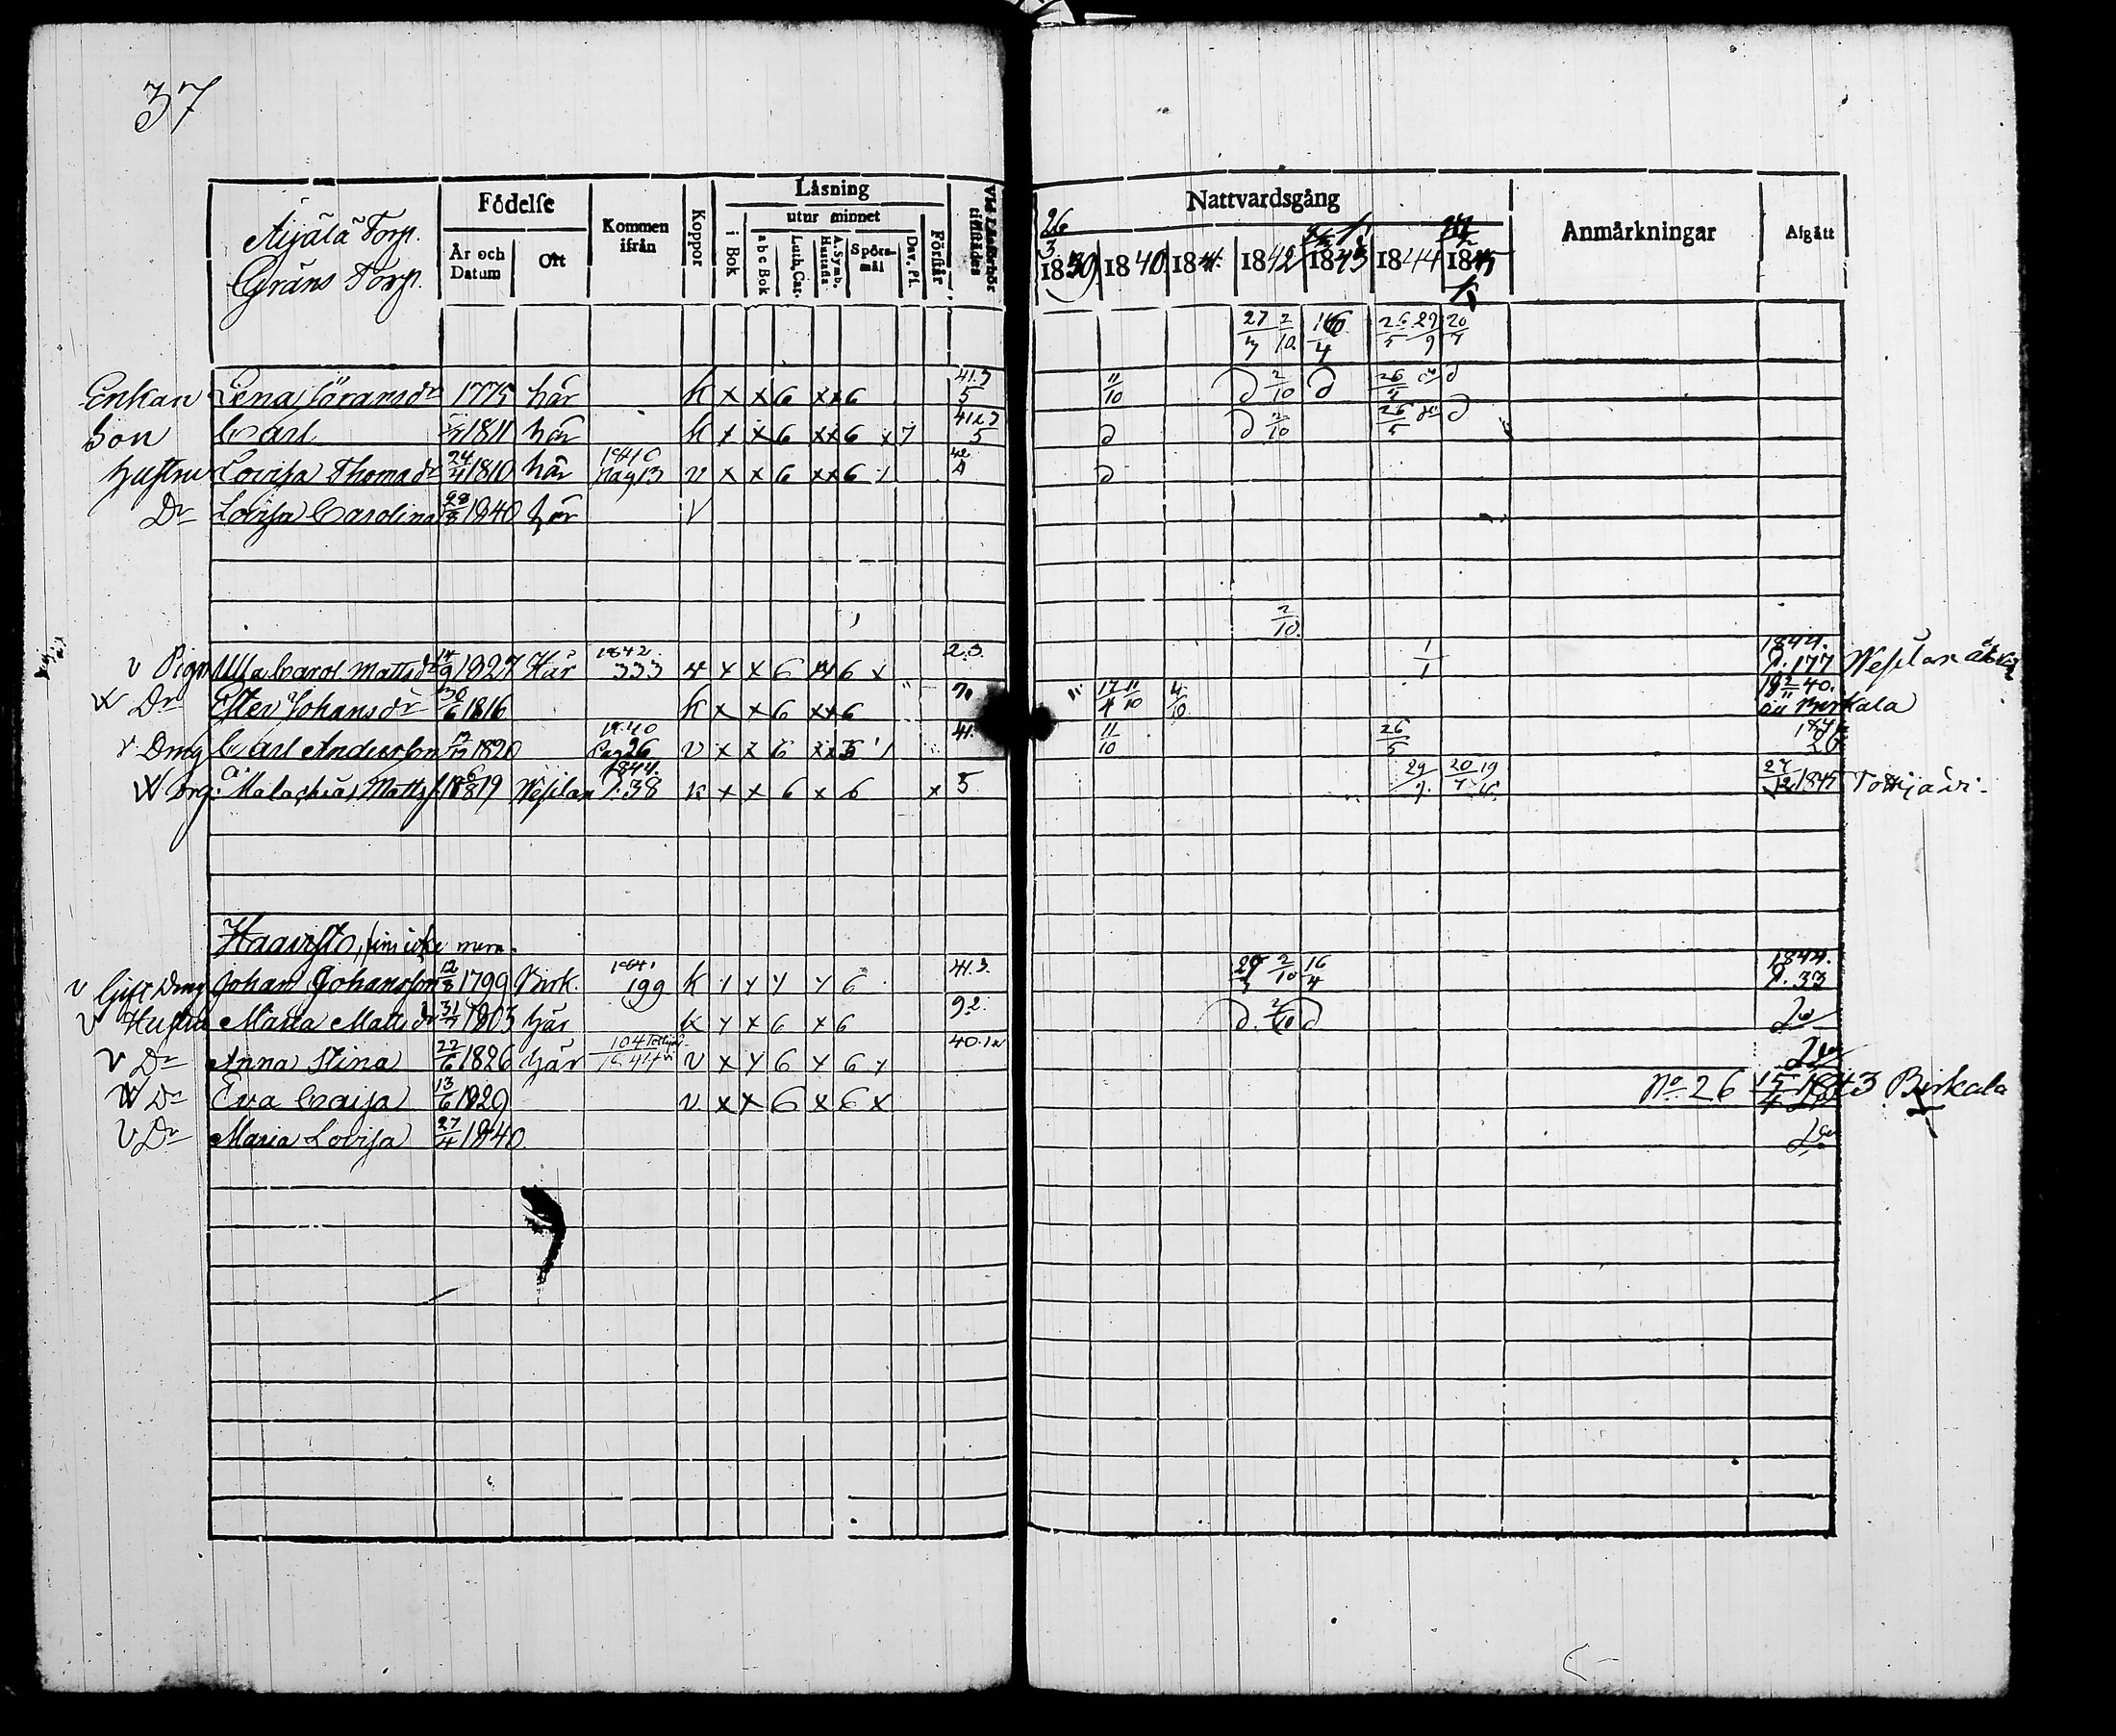 37
Äijälä Torp.
Gräns Torp.
Födelse
År och Datum
Ort
Kommen ifrån
Koppor
Läsning
i Bok
utur minnet
a b c Bok
Luth. Cat.
A. Symb. Hustafla
Spörs-mål
Dav. Ps.
Förstår
Vid Läseförhör tillstädes
Nattvardsgång
1839. 1840. 1841. 1842 1843 1844 1845
Anmärkningar
Afgått
27/3 2/10. 16/4 26/5 29/9 20/7
Enkan Lena Göransdr 1775 här k x x 6 x x 6 41.3 5 11/10 d 2/10 d 26/5 do d
Son Carl 1811 här k x x 6 x x 6 x 7 5 d d 2/10 26/5 do d
Hustru Lovisa Thomadr 24/4 1810 här 1840 Pag 13 v x x 6 x x 6 42 4 d
Dr Lovisa Carolina 28/8 1840 här v
2/10.
v Pign Ulla Carol Mattsdr 14/9 1827 Här 1842. 333 x x 6 6 x 2.3. 1/1 1844. p. 177 Wesilax
Dr Ester Johansdr 30/6 1816 k x x 6 x x 6 17/4 11/10 4/10 40. Birkala
v Dräng Carl Andersson 1820 1840 Pag 26 v x x 6 x x 5 41. 11/10 26/5
Drg. Malachias Mattss 1819 Wesilax 1844. p. 38 k x x 6 x 6 x 5 29/9. 20/7 19 27/12 1845 Tottijärvi.
Haavisto, finnes icke mera.
v Gift Dräng Johan Johansson 12/3 1799 Birk. 1841 199 k 6 41.3. 27/3 2/10 16/4 1844. p. 33
v Hustru Maria Mattsdr 31/7 1805 här k x 6 x 6 9.2. d. 2/10 d Do
v Dr Anna Stina 22/6 1826 här 104 v x 6 6 Do
Dr Eva Caisa 13/6 1829 v x x 6 x 6 x No 26 15/4 1843 Birkala
v Dr Maria Lovisa 27/4 1840. Do